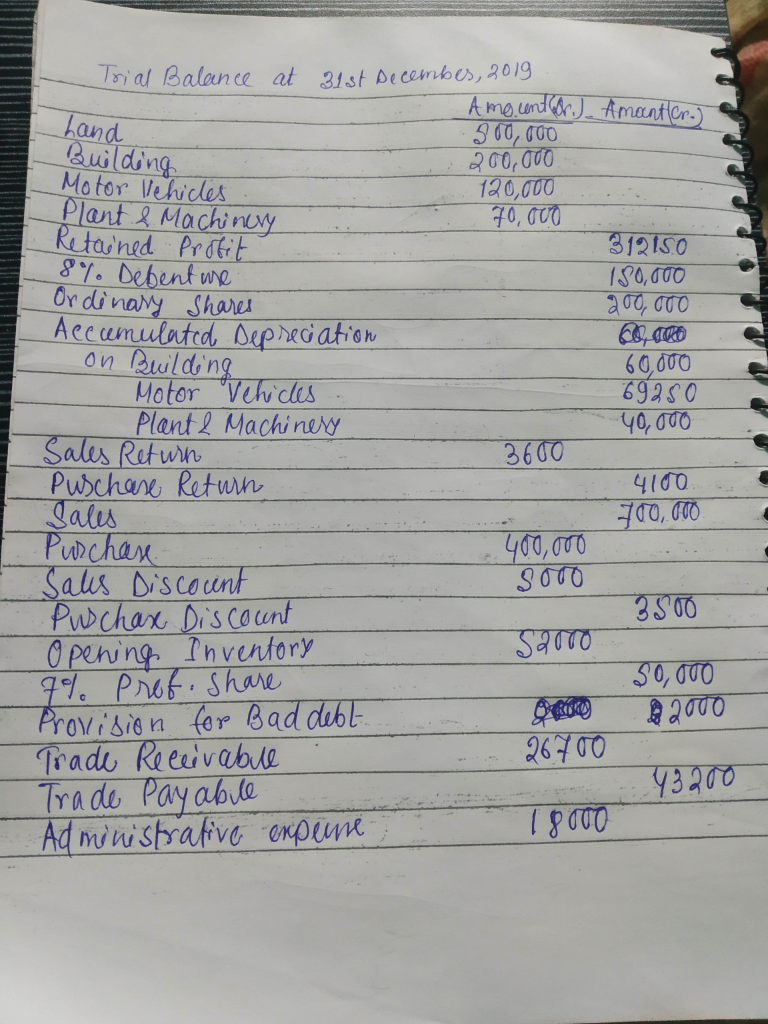 Trial Balance at 31st December, 2019
Amount(Dr.) Amount(Cr.)
Land 500,000
Building 200,000
Motor Vehicles 120,000
Plant & Machinery 70,000
Retained Profit 312150
8% Debenture 150,000
Ordinary Shares 200,000
Accumulated Depreciation
on Building 60,000
Motor Vehicles 69250
Plant & Machinery 40,000
Sales Return 3600
Purchase Return 4100
Sales 700,000
Purchase 400,000
Sales Discount 5000
Purchase Discount 3500
Opening Inventory 52000
7% Pref. Share 50,000
Provision for Bad debt 2000
Trade Receivable 26700
Trade Payable 43200
Administrative expense 18000